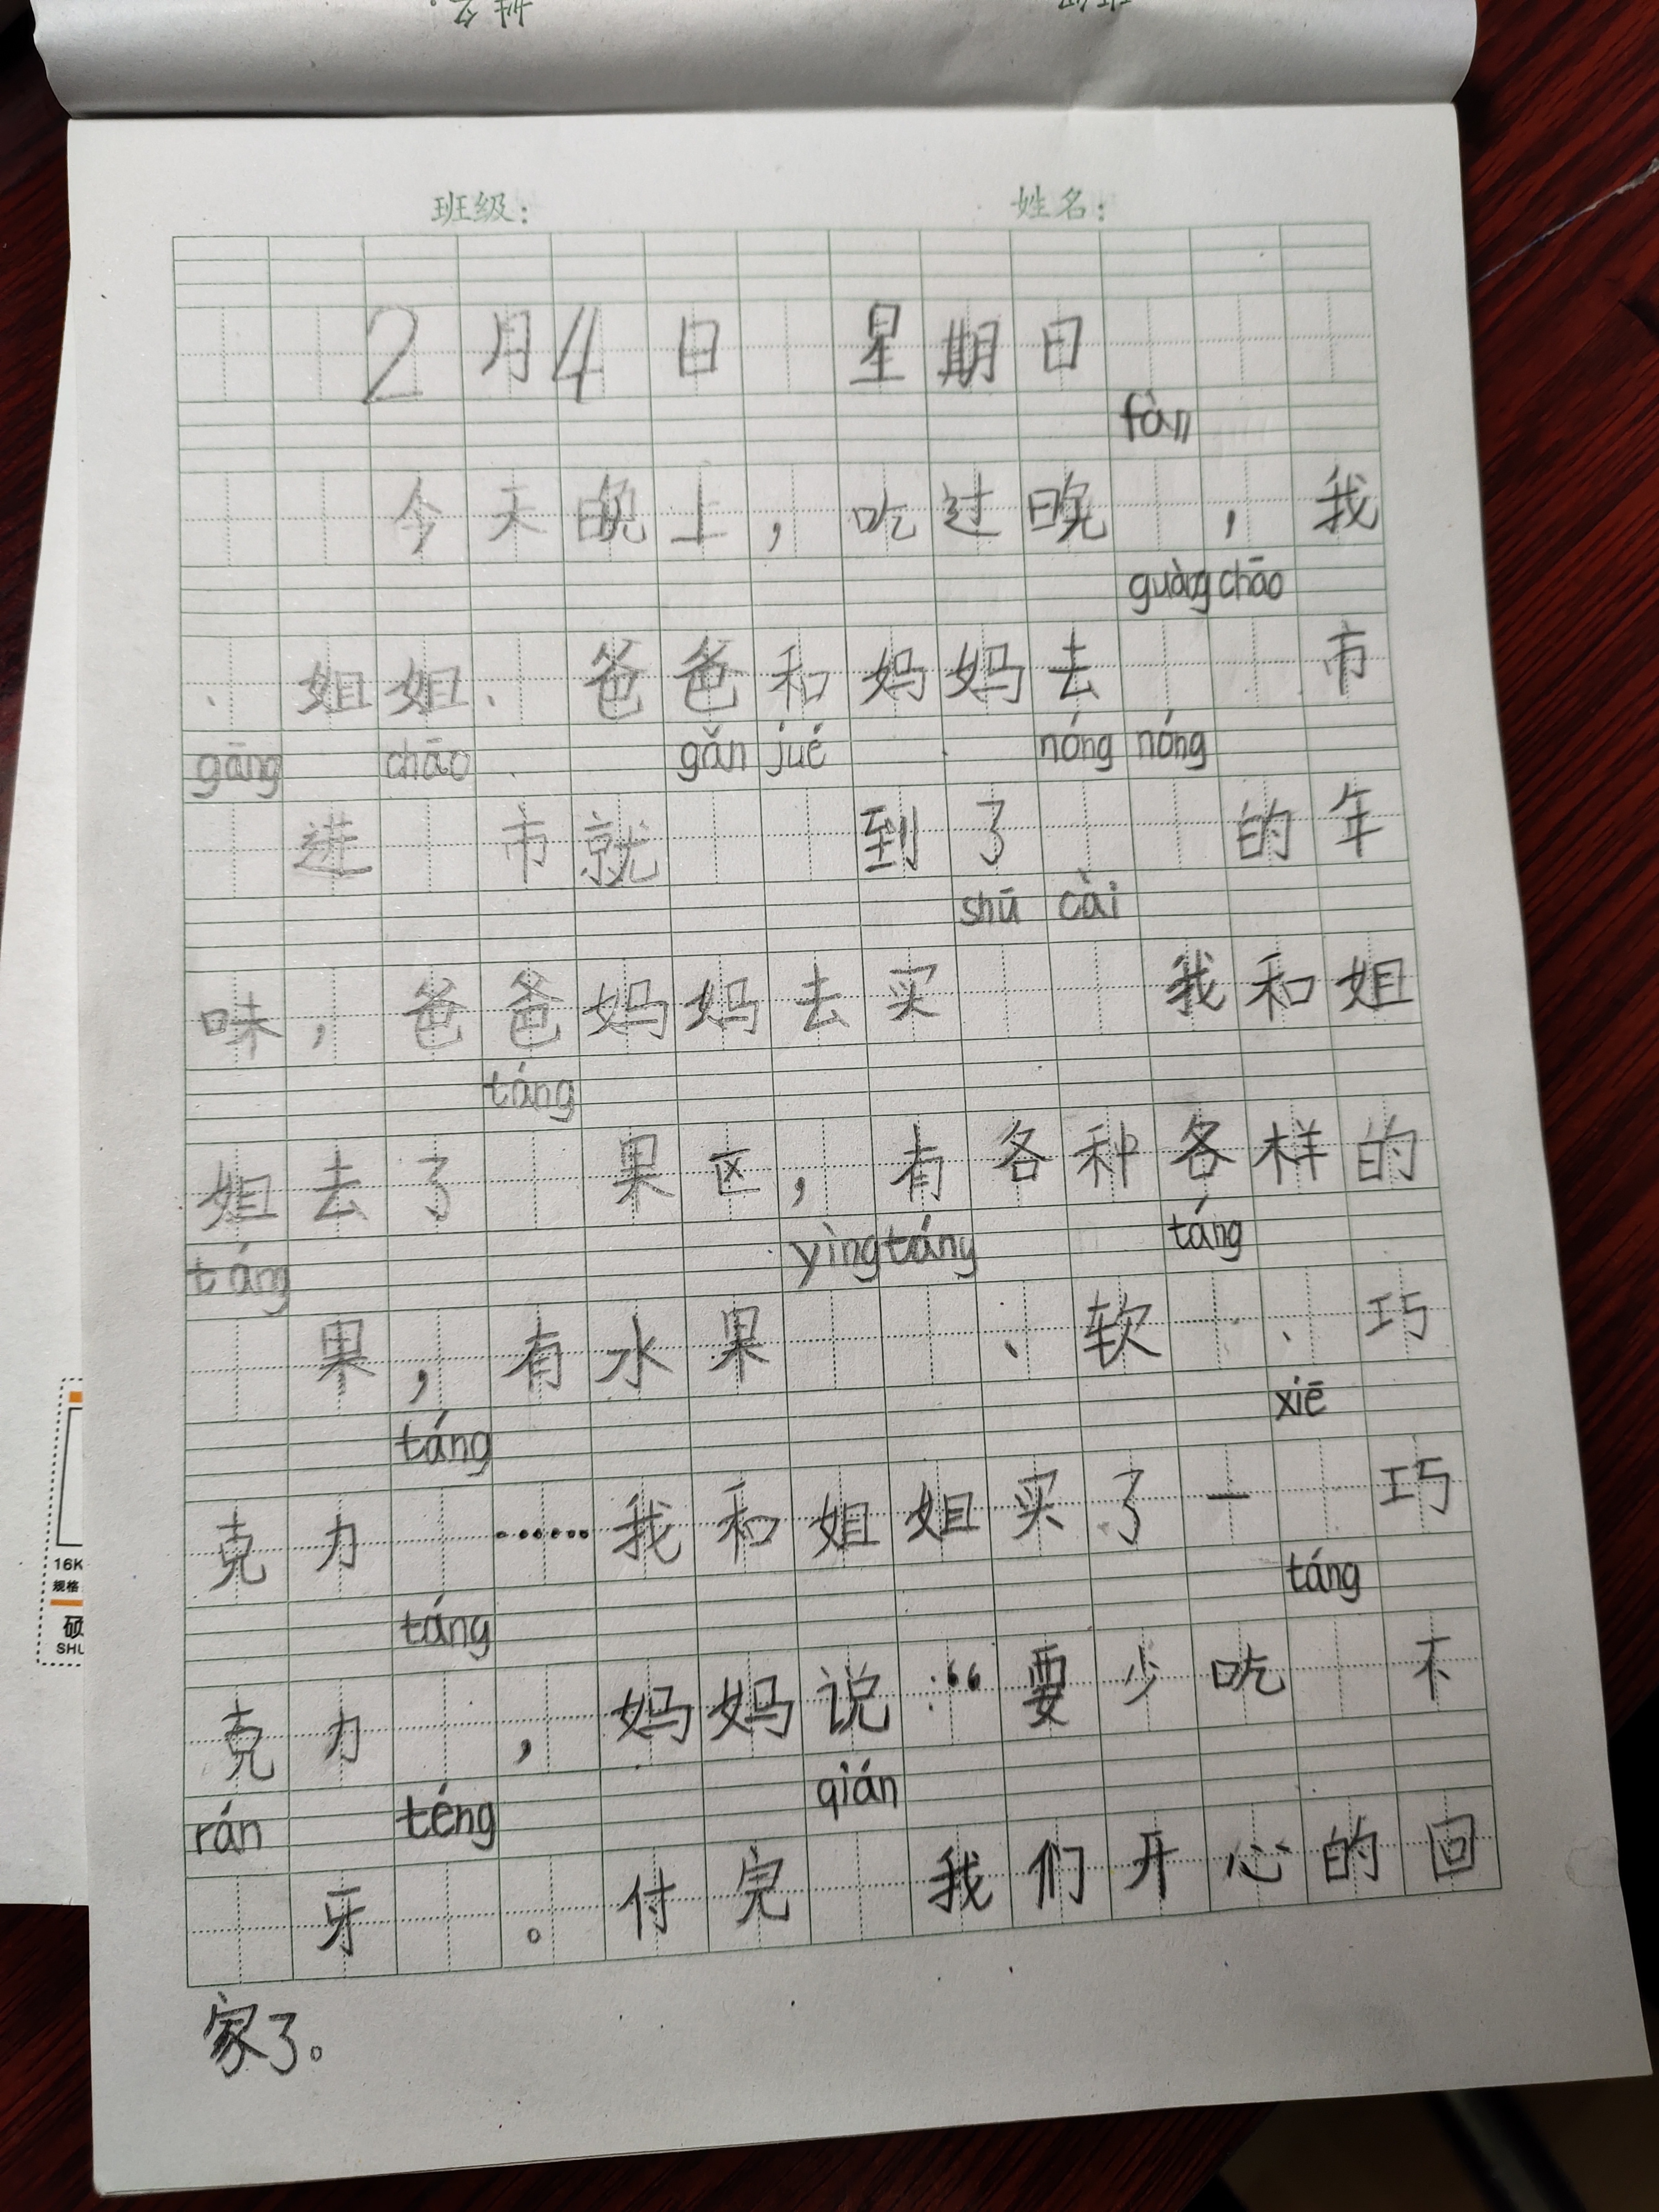 班级: 姓名:
2月4日 星期日
fàn
今天晚上，吃过晚 ，我
guàng chāo
、姐姐、爸爸和妈妈去 市
gāng chāo gǎn jué nóng nóng
进 市就 到了 的年
shū cài
味，爸爸妈妈去买 我和姐
táng
姐去了 果区，有各种各样的
táng yìng táng táng
果，有水果 、软 、巧
táng xiē
克力 ……我和姐姐买了一 巧
táng táng
克力 ，妈妈说：“要少吃 不
rán téng qián
牙 。付完 我们开心的回
家了。
16K
规格
硕
SHU